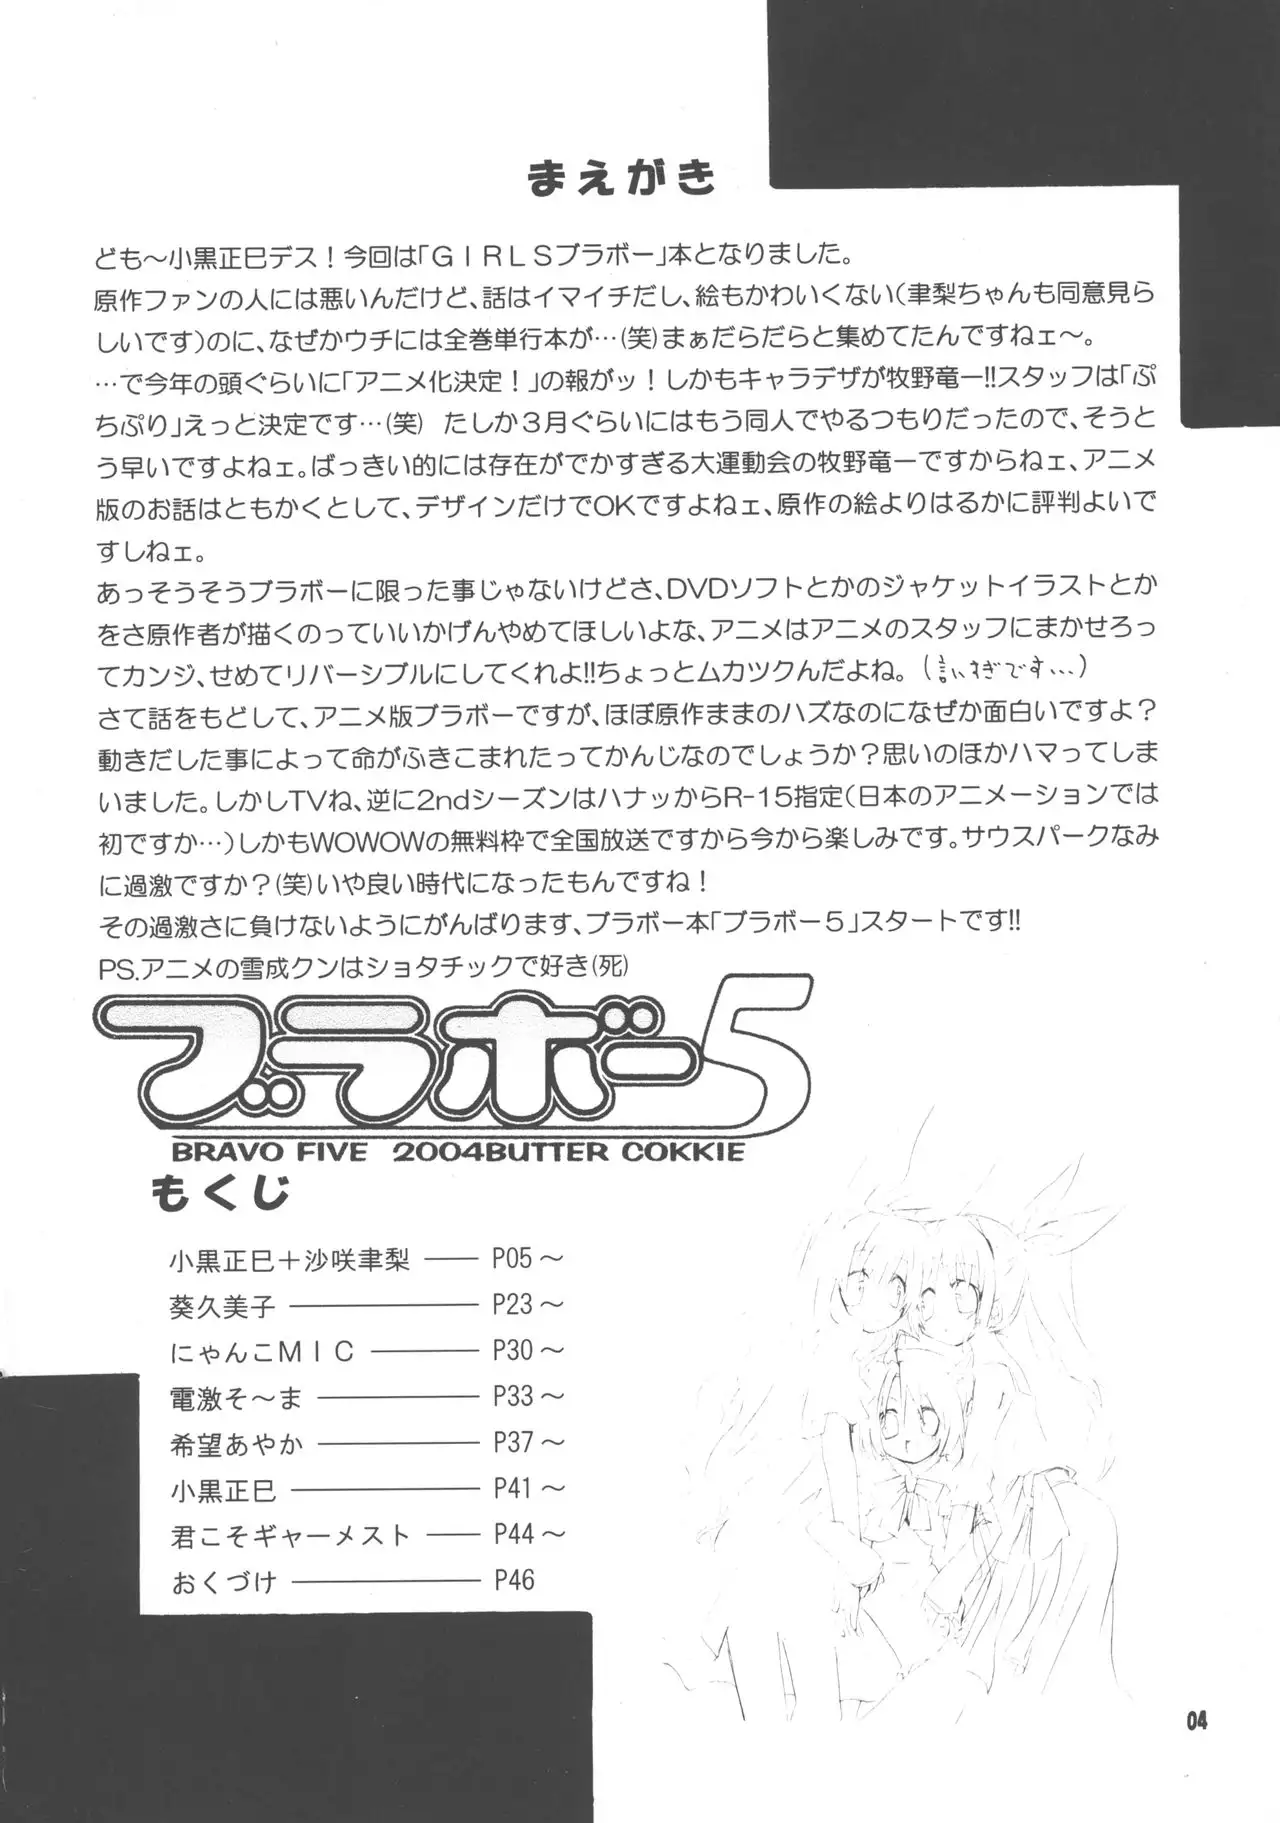 まえがき
ども～小黒正巳デス！今回は「ＧＩＲＬＳブラボー」本となりました。
原作ファンの人には悪いんだけど、話はイマイチだし、絵もかわいくない（聿梨ちゃんも同意見ら
しいです）のに、なぜかウチには全巻単行本が…（笑）まぁだらだらと集めてたんですねェ～。
…で今年の頭ぐらいに「アニメ化決定！」の報がッ！しかもキャラデザが牧野竜一!!スタッフは「ぷ
ちぷり」えっと決定です…（笑）　たしか３月ぐらいにはもう同人でやるつもりだったので、そうと
う早いですよねェ。ばっきい的には存在がでかすぎる大運動会の牧野竜一ですからねェ、アニメ
版のお話はともかくとして、デザインだけでOKですよねェ、原作の絵よりはるかに評判よいで
すしねェ。
あっそうそうブラボーに限った事じゃないけどさ、DVDソフトとかのジャケットイラストとか
をさ原作者が描くのっていいかげんやめてほしいよな、アニメはアニメのスタッフにまかせろっ
てカンジ、せめてリバーシブルにしてくれよ!!ちょっとムカツクんだよね。（言いすぎです…）
さて話をもどして、アニメ版ブラボーですが、ほぼ原作ままのハズなのになぜか面白いですよ？
動きだした事によって命がふきこまれたってかんじなのでしょうか？思いのほかハマってしま
いました。しかしTVね、逆に2ndシーズンはハナッからR-15指定（日本のアニメーションでは
初ですか…）しかもWOWOWの無料枠で全国放送ですから今から楽しみです。サウスパークなみ
に過激ですか？（笑）いや良い時代になったもんですね！
その過激さに負けないようにがんばります、ブラボー本「ブラボー５」スタートです!!
PS.アニメの雪成クンはショタチックで好き（死）
ブラボー5
BRAVO FIVE 2004BUTTER COKKIE
もくじ
小黒正巳＋沙咲聿梨 ―― P05～
葵久美子 ――――――― P23～
にゃんこＭＩＣ ―――― P30～
電激そ～ま ―――――― P33～
希望あやか ―――――― P37～
小黒正巳 ――――――― P41～
君こそギャーメスト ―― P44～
おくづけ ――――――― P46
04